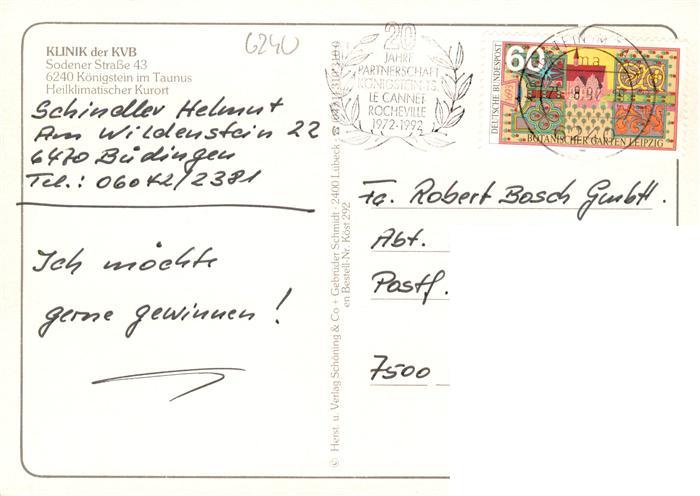 6240
KLINIK der KVB
Sodener Straße 43
6240 Königstein im Taunus
Heilklimatischer Kurort
Schindler Helmut
Am Wildenstein 22
6470 Büdingen
Tel.: 06042/2381
Ich möchte
gerne gewinnen!
© Herst. u. Verlag Schöning & Co + Gebrüder Schmidt · 2400 Lübeck ·
en Bestell-Nr. Köst 292
20
JAHRE
PARTNERSCHAFT
KÖNIGSTEIN-TS.
LE CANNET-
ROCHEVILLE
1972-1992
60
DEUTSCHE BUNDESPOST
BOTANISCHER GARTEN LEIPZIG
6240
Fa. Robert Bosch GmbH.
Abt.
Postf.
7500